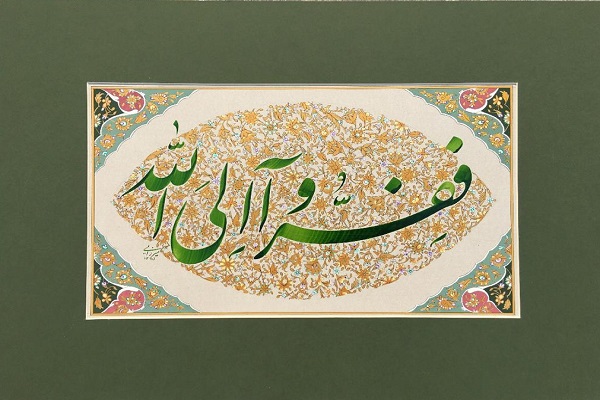 فَفِرُّوآ اِلَی الله